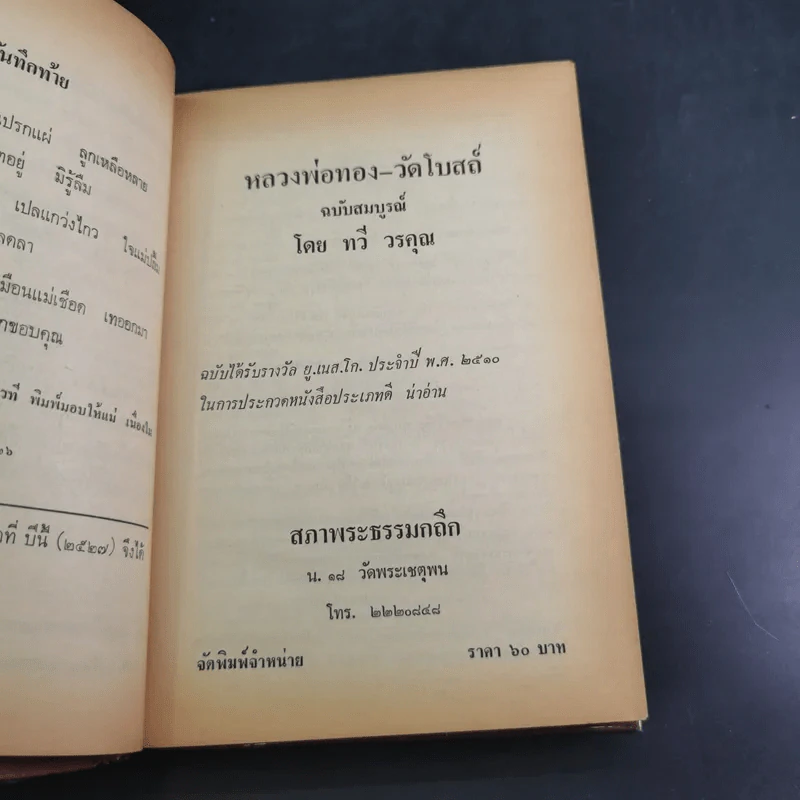 ันทึกท้าย
เปรกแผ่ ลูกเหลือหลาย
อยู่ มิรู้ลืม
เปลแกว่งไกว ใจแม่ปลื้ม
ลดลา
มือนแม่เชือด เทออกมา
กขอบคุณ
รที่ พิมพ์มอบให้แม่ เนื่องใน
๒๖
ที่ ปีนี้ (๒๕๒๗) จึงได้
หลวงพ่อทอง-วัดโบสถ์
ฉบับสมบูรณ์
โดย ทวี วรคุณ
ฉบับได้รับรางวัล ยู.เนส.โก. ประจำปี พ.ศ. ๒๕๑๐
ในการประกวดหนังสือประเภทดี น่าอ่าน
สภาพระธรรมกถึก
น. ๑๘ วัดพระเชตุพน
โทร. ๒๒๒๐๘๔๘
จัดพิมพ์จำหน่าย ราคา ๖๐ บาท